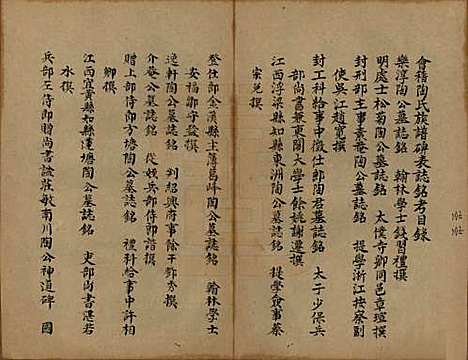 會稽陶氏族譜碑表誌銘考目錄
樂淳陶公墓誌銘 翰林學士錢習禮撰
明處士松菊陶公墓誌銘 太僕寺卿同邑章瑄撰
封刑部主事素菴陶公墓誌銘 提學浙江按察副
使吳江趙寬撰
封工科給事中徵仕郎陶君墓誌銘 太子少保兵
部尚書兼東閣大學士餘姚謝遷撰
江西浮梁縣知縣東洲陶公墓誌銘 提學僉事蔡
宗兗撰
登仕郎金溪縣主薄菖峰陶公墓誌銘 翰林學士
安福鄒守益撰
逸軒陶公墓誌銘 刘紹興府事餘干鄒秀撰
介菴公墓誌銘 從姪兵部侍郎諧撰
贈上部侍郎方塘陶公墓誌銘 禮科給事中許相
卿撰
江西宜黃縣知縣蓮塘陶公墓誌銘 吏部尚書湛若
水撰
兵部左侍郎贈尚書諡莊敏南川陶公神道碑 國